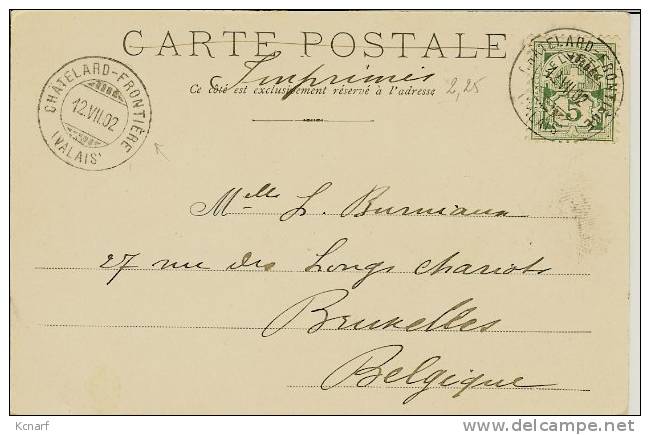 CARTE POSTALE
Imprimés
2,25
Ce côté est exclusivement réservé à l'adresse
CHÂTELARD-FRONTIÈRE
12.VII.02
(VALAIS)
CHÂTELARD-FRONTIÈRE
12.VII.02
5
Melle L. Burniaux
27 rue des Longs Chariots
Bruxelles
Belgique
Kcnarf
delcampe.net